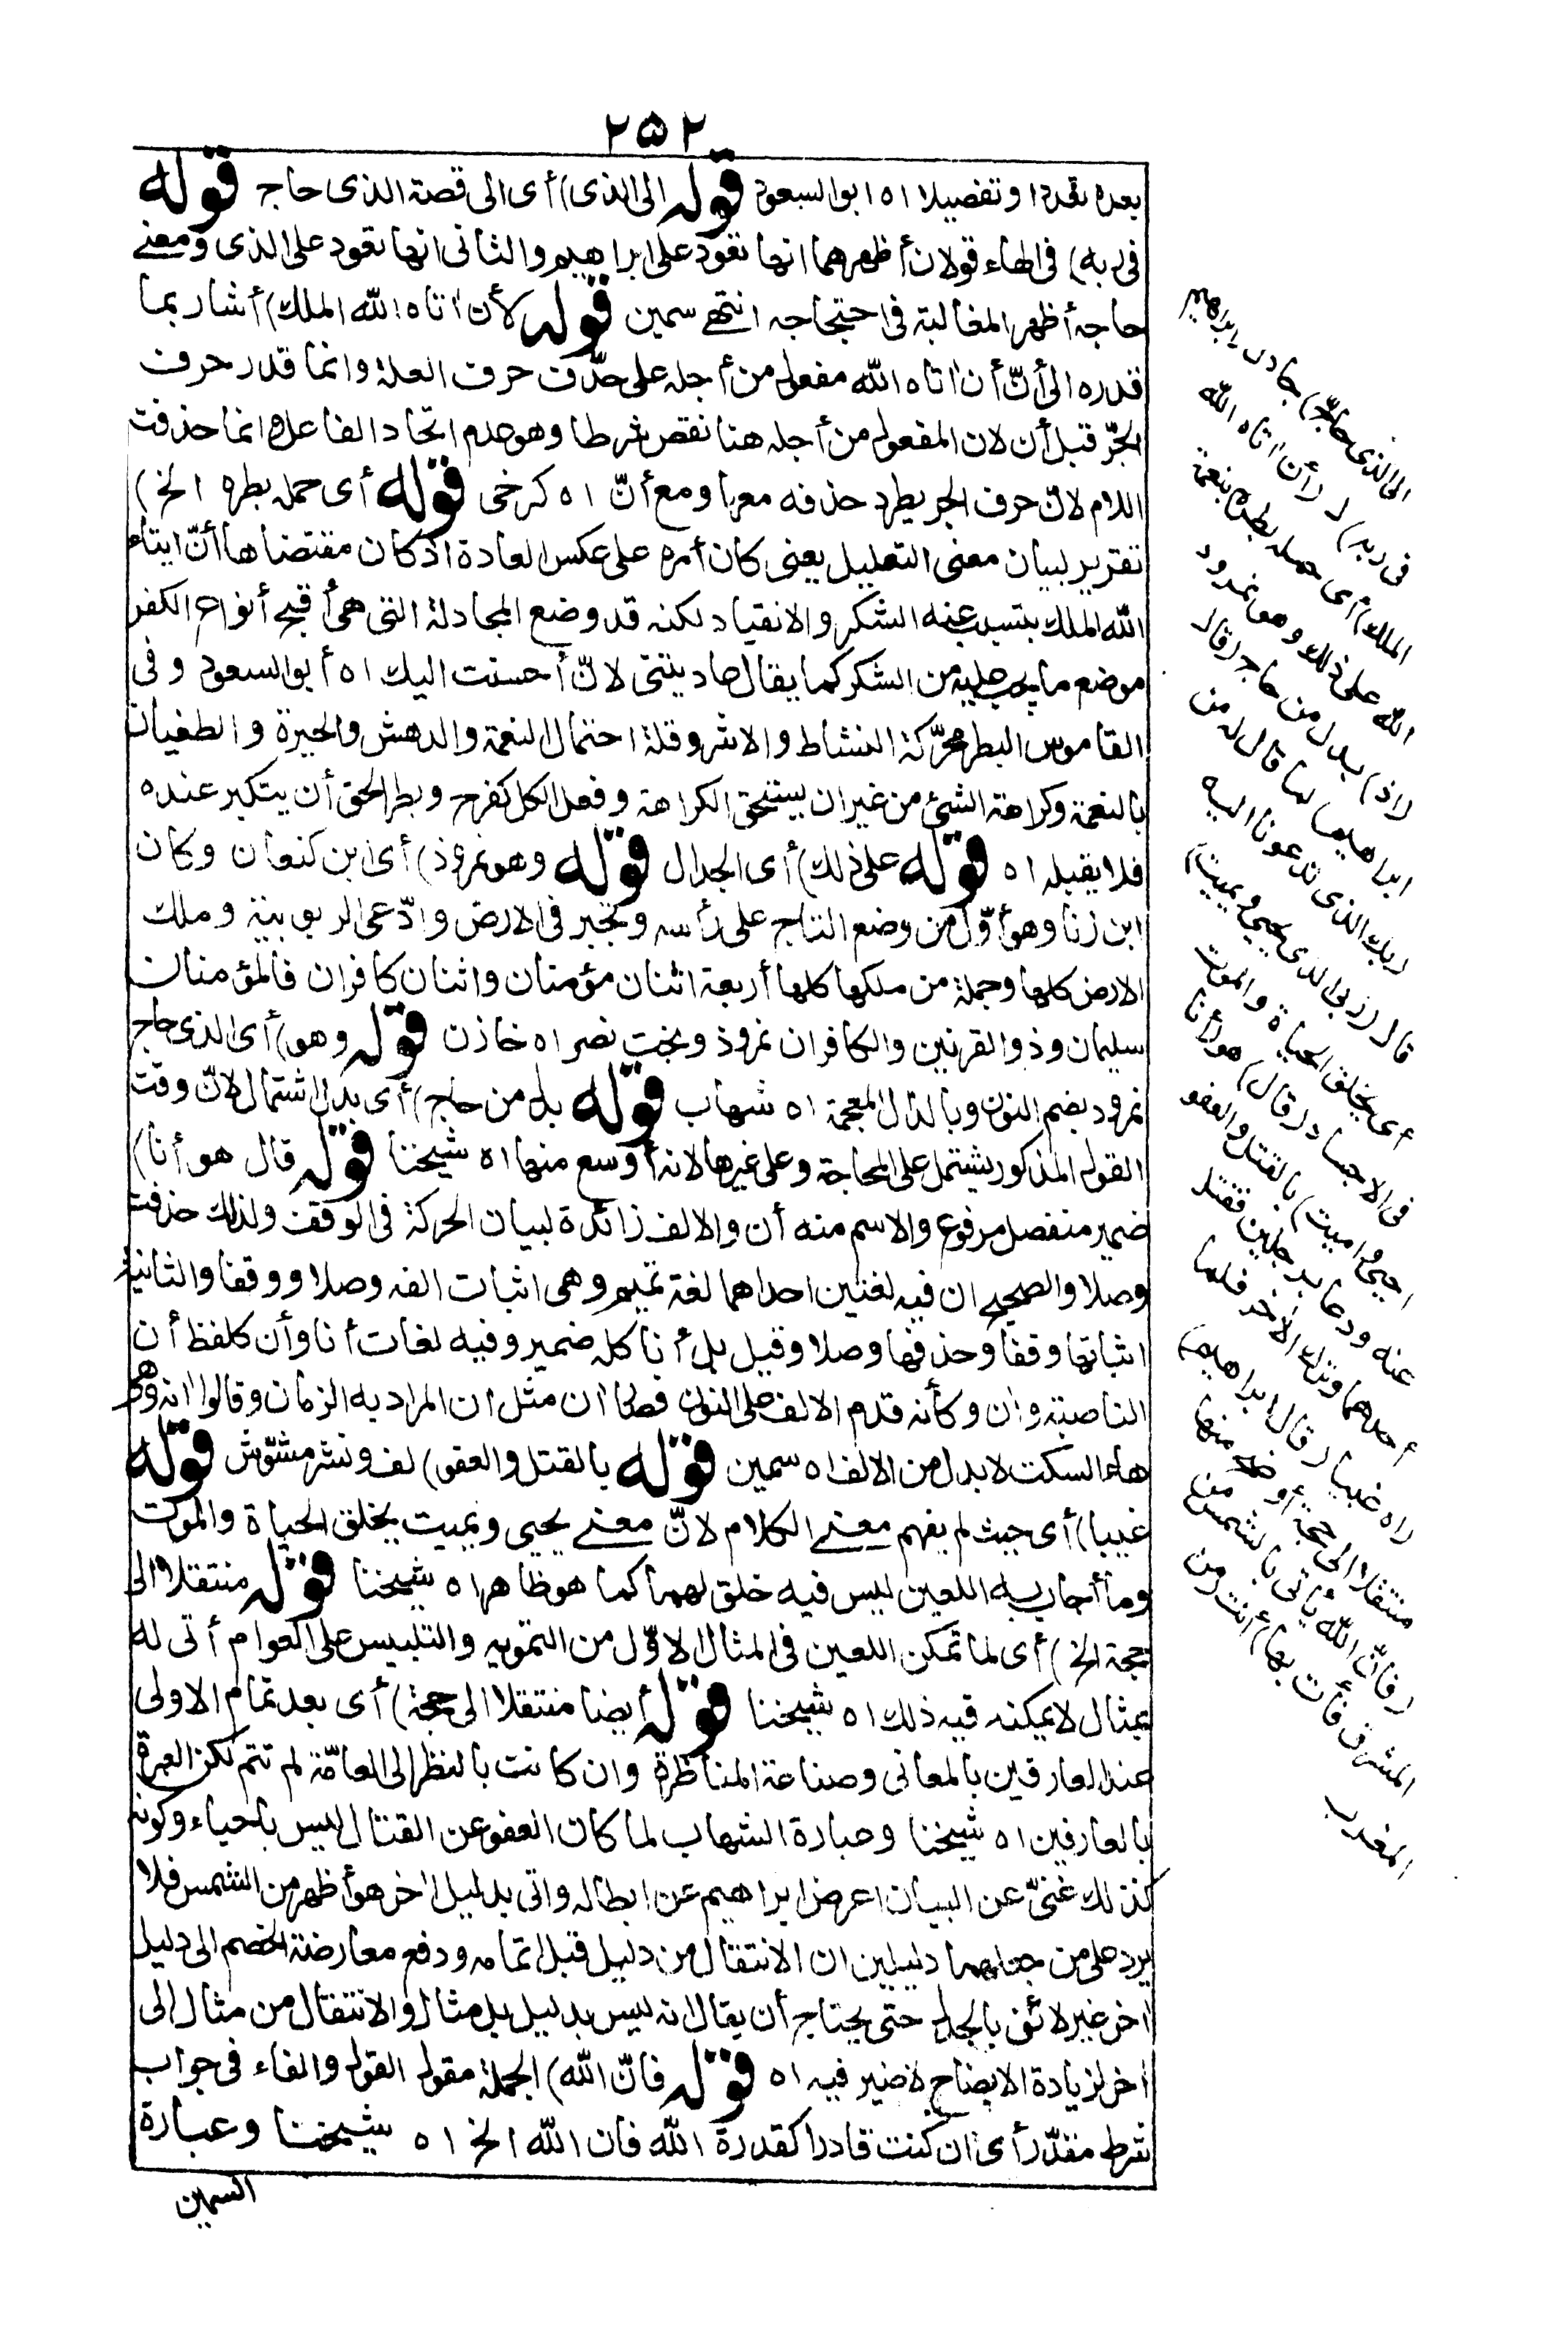 ٢٥٢
بعده تعددا وتفصيلا اه ابوالسعود قوله الى الذى) أى الى قصة الذى حاج قوله
فى ربه) فى الهاء قولان أظهرهما انها تعود على ابراهيم والثانى انها تعود على الذى ومعنے
حاجه أظهر المغالبة فى احتجاجه انتهے سمين قوله لأن اتاه الله الملك) أشار بما
قدره الى أنّ أن اتاه الله مفعول من أجله على حذف حرف العلة وانما قدر حرف
الجرّ قبل أن لان المفعول من أجله هنا نقص شرطا وهو عدم اتحاد الفاعل وانما حذفت
اللام لانّ حرف الجر يطرد حذفه معها ومع أنّ اه كرخى قوله أى حمله بطره الخ)
تقرير لبيان معنى التعليل يعنى كان أمره على عكس العادة اذ كان مقتضاها أنّ ايتاء
الله الملك يتسبب عنه الشكر والانقياد لكنه قد وضع المجادلة التى هى أقبح أنواع الكفر
موضع ما يجب عليه من الشكر كما يقال عاديتنى لانّ أحسنت اليك اه أبوالسعود وفى
القاموس البطر محرّكة النشاط والاشر وقلة احتمال النعمة والدهش والحيرة والطغيان
بالنعمة وكراهة الشئ من غير ان يستحق الكراهة وفعل الكل كفرح وبطر الحق أن يتكبر عنده
فلا يقبله اه قوله على ذلك) أى الجدال قوله وهو نمروذ) أى ابن كنعان وكان
ابن زنا وهو أوّل من وضع التاج على رأسه وتجبر فى الارض وادّعى الربوبية وملك
الارض كلها وجملة من ملكها كلها أربعة اثنان مؤمنان واثنان كافران فالمؤمنان
سليمان وذوالقرنين والكافران نمروذ وبخت نصر اه خازن قوله وهو) أى الذى حاج
نمرود بضم النون وبالذال المعجمة اه شهاب قوله بدل من حاج) أى بدل اشتمال لانّ وقت
القول المذكور يشتمل على المحاجة وعلى غيرها لانه أوسع منها اه شيخنا قوله قال هو أنا)
ضمير منفصل مرفوع والاسم منه أن والالف زائدة لبيان الحركة فى الوقف ولذلك حذفت
وصلا والصحيح ان فيه لغتين احداهما لغة تميم وهى اثبات الفه وصلا ووقفا والثانية
اثباتها وقفا وحذفها وصلا وقيل بل أنا كله ضمير وفيه لغات أنا وأن كلفظ أن
الناصبة وان وكأنه قدم الالف على النون فصار ان مثل ان المراد به الزمان وقالوا انه وهى
هاء السكت لا بدل من الالف اه سمين قوله بالقتل والعفو) لف ونشر مشوّش قوله
غبيا) أى حيث لم يفهم معنے الكلام لانّ معنے يحيى ويميت يخلق الحياة والموت
وما أجاب به اللعين ليس فيه خلق لهما كما هو ظاهر اه شيخنا قوله منتقلا الى
حجة الخ) أى لما تمكن اللعين فى المثال الاوّل من التمويه والتلبيس على العوام أتى له
بمثال لا يمكنه فيه ذلك اه شيخنا قوله أيضا منتقلا الى حجة) أى بعد تمام الاولى
عند العارفين بالمعانى وصناعة المناظرة وان كانت بالنظر الى العامّة لم تتم لكن العبرة
بالعارفين اه شيخنا وعبارة الشهاب لما كان العفو عن القتال ليس باحياء وكونه
كذلك غنىّ عن البيان اعرض ابراهيم عن ابطاله واتى بدليل اخر هو أظهر من الشمس فلا
يرد على من جعلهما دليلين ان الانتقال من دليل قبل اتمامه ودفع معارضة الخصم الى دليل
اخر غير لائق بالجدل حتى يحتاج أن يقال انه ليس بدليل بل مثال والانتقال من مثال الى
اخر لزيادة الايضاح لا ضير فيه اه قوله فانّ الله) الجملة مقول القول والفاء فى جواب
شرط مقدّر أى ان كنت قادرا كقدرة الله فان الله الخ اه شيخنا وعبارة
السمين
الى الذى حاجّ) جادل ابراهيم
فى ربه) ( لأن اتاه الله
الملك) أى حمله بطره بنعمة
الله على ذلك وهو نمرود
(اذ) بدل من حاج (قال
ابراهيم) لما قال له من
ربك الذى تدعونا اليه
قال (ربى الذى يحيى ويميت)
أى يخلق الحياة والموت
فى الاجساد (قال) هو (أنا
احيى واميت) بالقتل والعفو
عنه ودعا برجلين فقتل
أحدهما وترك الآخر فلما
راه غبيا (قال ابراهيم)
منتقلا الى حجة أوضح منها
(فانّ الله يأتى بالشمس من
المشرق فأت بها) أنت (من
المغرب